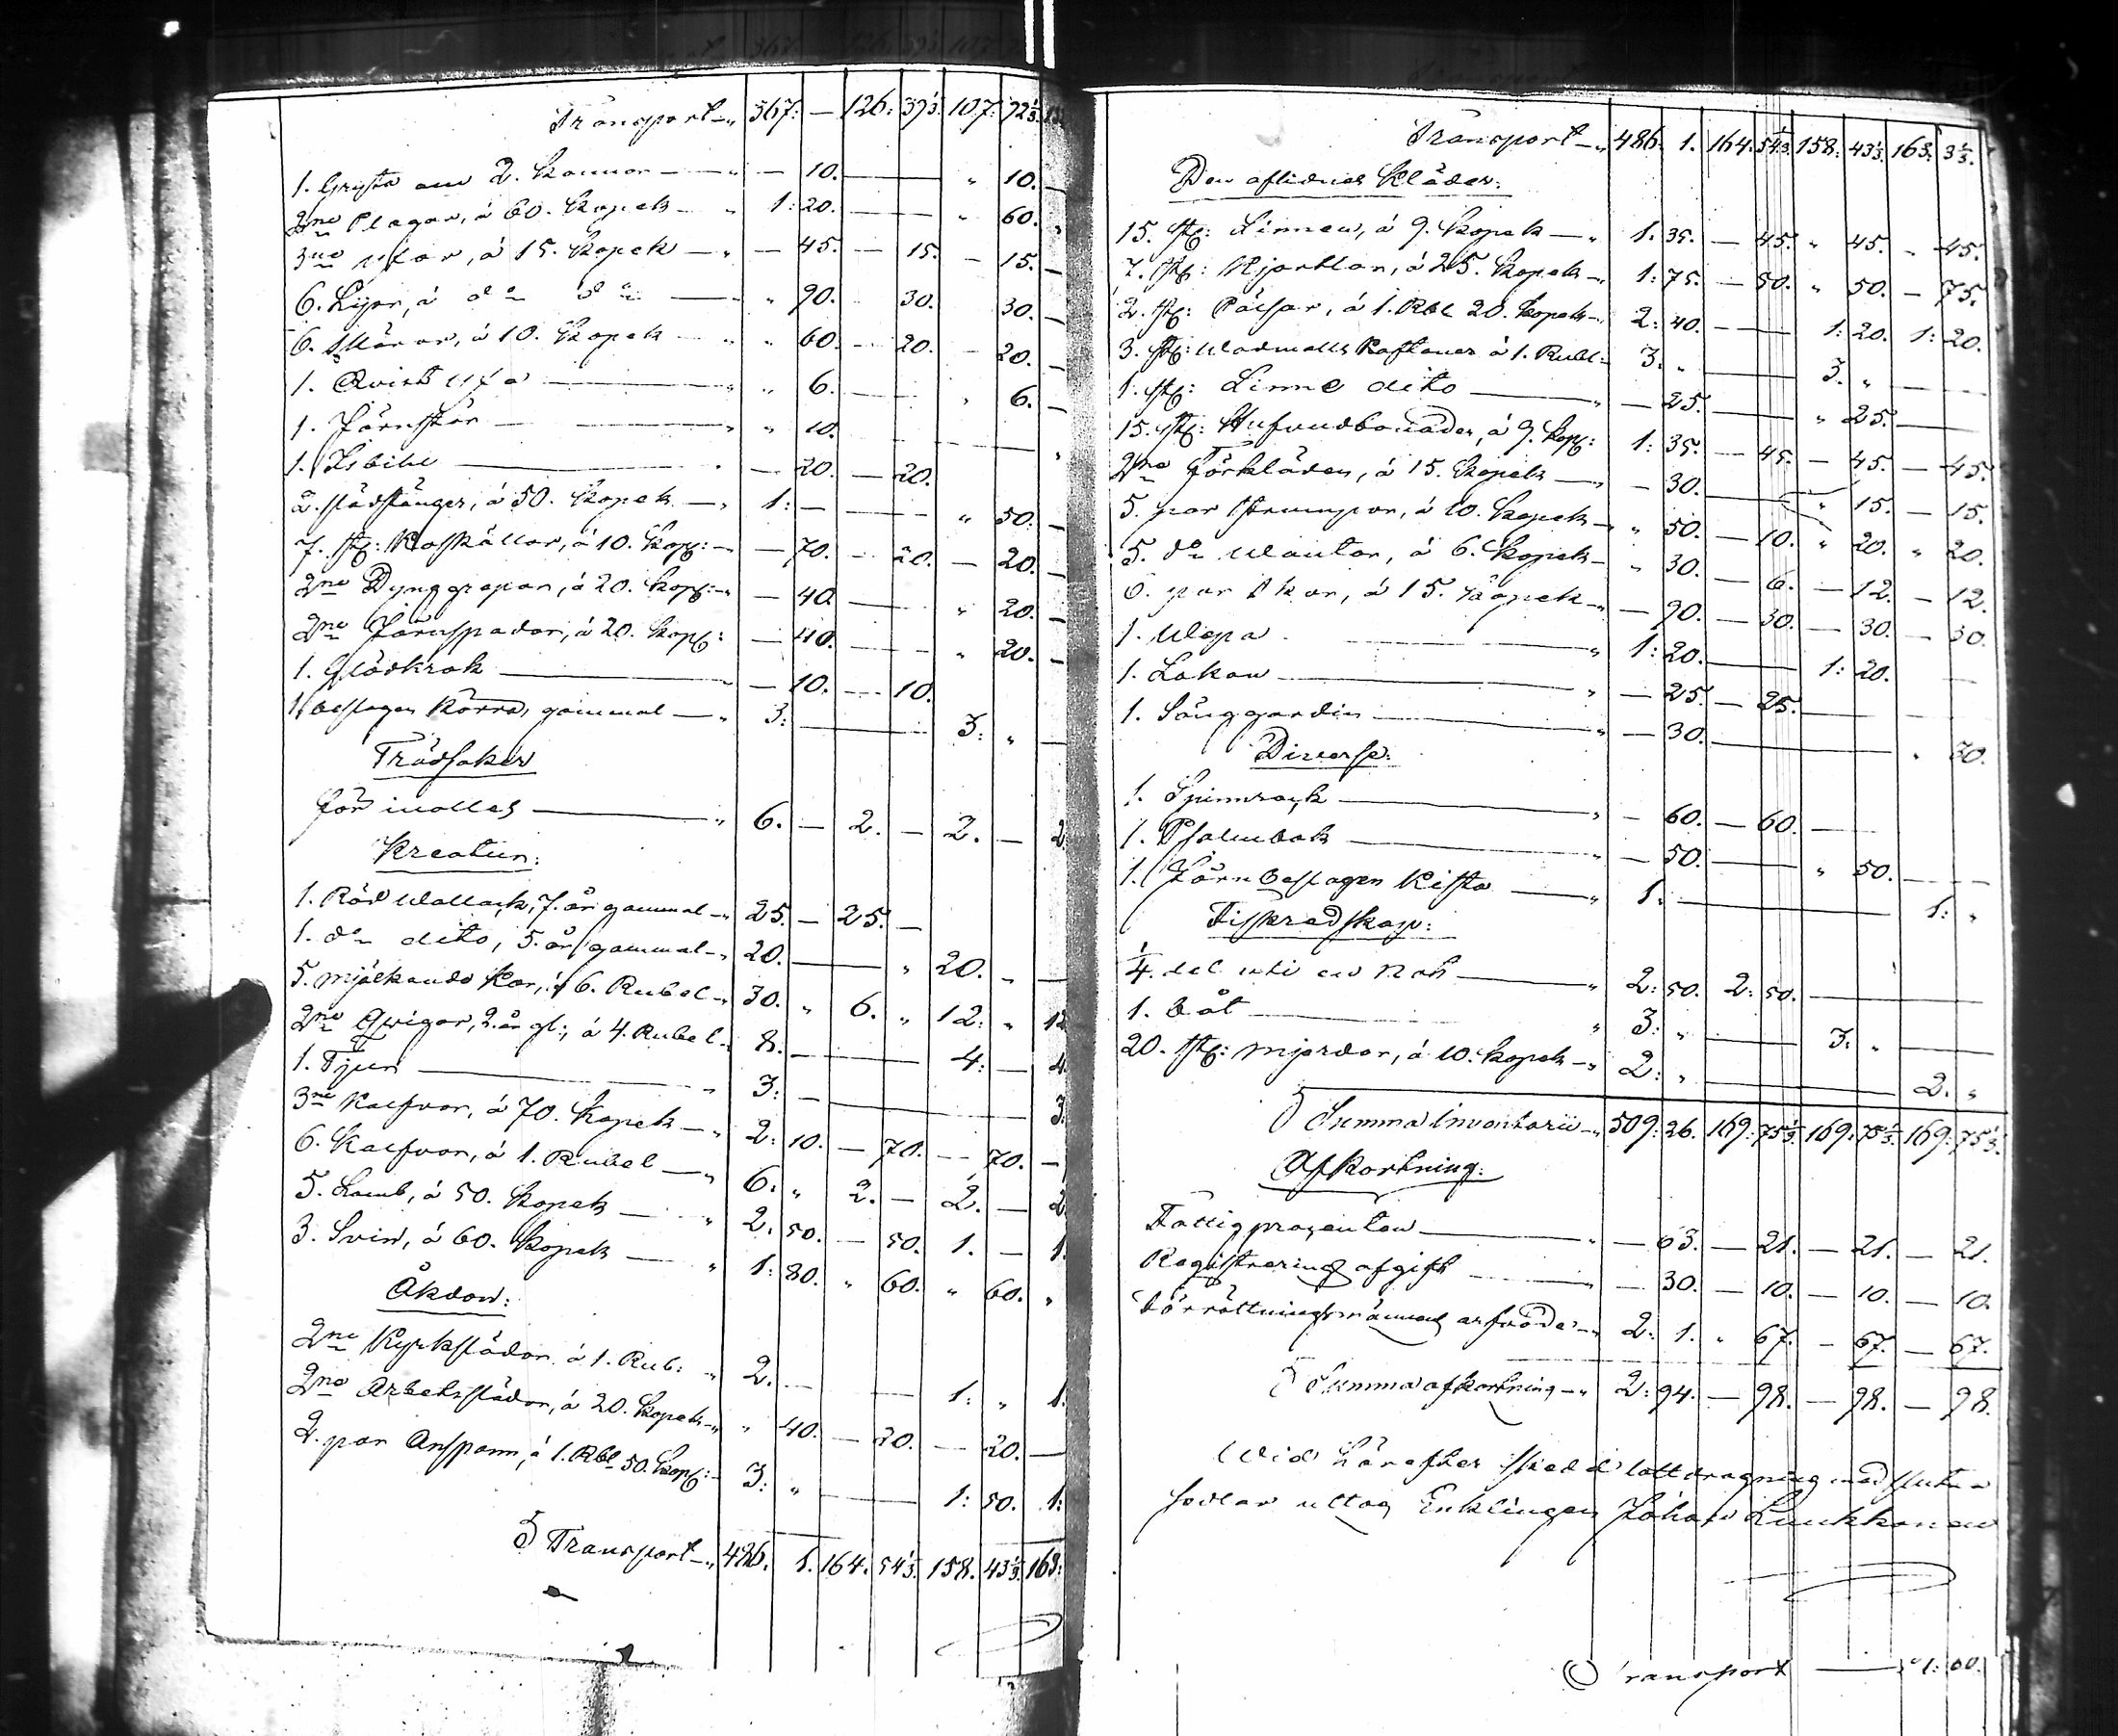 Transport 367: — 126: 39⅓ 107: 72⅓
1. Gryta om 2. Kannor — 10. — " 10. —
2ne Plagar, á 60. Kopek " 1: 20. — " 60. "
3ne yxor, á 15. Kopek " — 45. — 15. — 15. —
6. Lijor, á do do " 90. 30. 30. —
6. Skäror, á 10. Kopek " " 60. — 20. — 20. —
1. Qvist yxa " " 6. — " 6. —
1. Järnstör " " 10. —
1. Isbill — 20. — 20.
2. slädstänger, á 50. Kopek " 1: — " 50. —
7. st: Koskällor, á 10. Kop: — — 70. — 20. — 20. —
2ne Dynggrepar, á 20. Kop: " — 40. — " 20. —
2ne Järnspador, á 20. Kop: — 40. — " 20. —
1. Glödkrok " — 10. — 10.
1. beslagen Kärra, gammal " 3: — 3: " —
Trädsaker
för inalles " 6. — 2. — 2. — 2.
Kreatur:
1. Röd Wallack, 7. år gammal " 25. — 25. —
1. do dito, 5. år gammal " 20. — " 20. " —
5. mjölkande Kor, á 6. Rubel " 30. " 6. " 12: " 12
2ne Qvigor, 2. år gl:, á 4. Rubel " 8. — 4: — 4.
1. Tjur " 3: — 3:
3ne Kalfvar, á 70. Kopek " 2: 10. — 70. — 70. —
6. Kalfvar, á 1. Rubel " 6. " 2. — 2. — 2
5. Lamb, á 50. Kopek " 2. 50. — 50. 1. — 1.
3. Svin, á 60. Kopek " 1: 80. " 60. " 60. "
Åkdon:
2ne Kyrkslädor á 1. Rub: " 2. — 1: " 1.
2ne Arbetsslädor, á 20. Kopek " " 40. — 20. — 20. —
2. par Anspann, á 1. Rbl 50. Kop: 3: " — 1: 50. 1:
Transport " 486. 1. 164. 54⅓ 158. 43⅓ 163:
Transport " 486. 1. 164. 54⅓ 158. 43⅓ 163. 3⅓.
Den aflidnes Kläder:
15. st: Linnen, á 9. Kopek " 1. 35. — 45. " 45. " 45.
7. st: Kjortlar, á 25. Kopek " 1: 75. — 50. " 50. — 75.
2. st: Pälsar, á 1. Rbl 20. Kopek 2: 40. — 1: 20. 1: 20.
3. st: Wadmalls Kaftaner á 1. Rubl 3. " — 3. " —
1. st: Linne dito " — 25. — " 25. —
15. st: Hufvudbonader, á 9. Kop: 1: 35. — 45. — 45. — 45.
2ne Förkläden, á 15. Kopek " — 30. — " 15. — 15.
5. par Strumpor, á 10. Kopek " " 50. — 10. " 20. " 20.
5. do Wantar, á 6. Kopek " 30. — 6. — 12. — 12.
6. par Skor, á 15. Kopek " — 90. — 30. — 30. — 30.
1. Wepa " 1: 20. — 1: 20. —
1. Lakan " — 25. — 25. —
1. Sänggardin " — 30. — " 30.
Diverse:
1. Spinnrock " — 60. — 60. —
1. Psalmbok " — 50. — " 50. —
1. Järnbeslagen Kista " 1: — 1: "
Fiskredskap:
¼. del uti en Not " 2: 50. 2: 50. —
1. båt " 3: " — 3. " —
20. st: Mjerdor, á 10. Kopek " 2: " — 2. "
Summa Inventarii " 509: 26. 169: 75⅓. 169. 75⅓. 169. 75⅓.
Afkortning:
Fattigprozenten " — 63. — 21. — 21. — 21.
Registrerings afgift " — 30. — 10. — 10. — 10.
Förrättningsmännens arfvode " 2: 1. " 67. — 67. — 67.
Summa afkortning " 2: 94. — 98. — 98. — 98.
Wid härefter skedd lottdragning med slutna
sedlar uttog Enklingen Johan Luukkonen
Transport